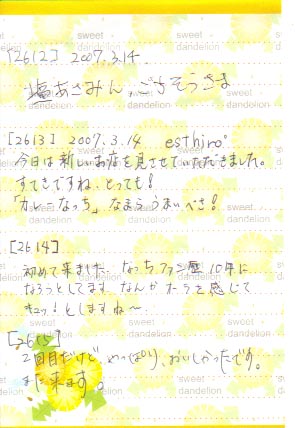 [2612] 2007.3.14
塩あさみん、ごちそうさま
[2613] 2007.3.14 esthiro
今日は新しいお店を見させていただきました。
すてきですね、とっても!
「カレーなっち」なまらうまいべさ!
[2614]
初めて来ました。なっちファン歴10年に
なろうとしてます。なんかオーラを感じて
キュッ!としますね〜
[2615]
2回目だけど、やっぱり、おいしかったです。
また来ます。